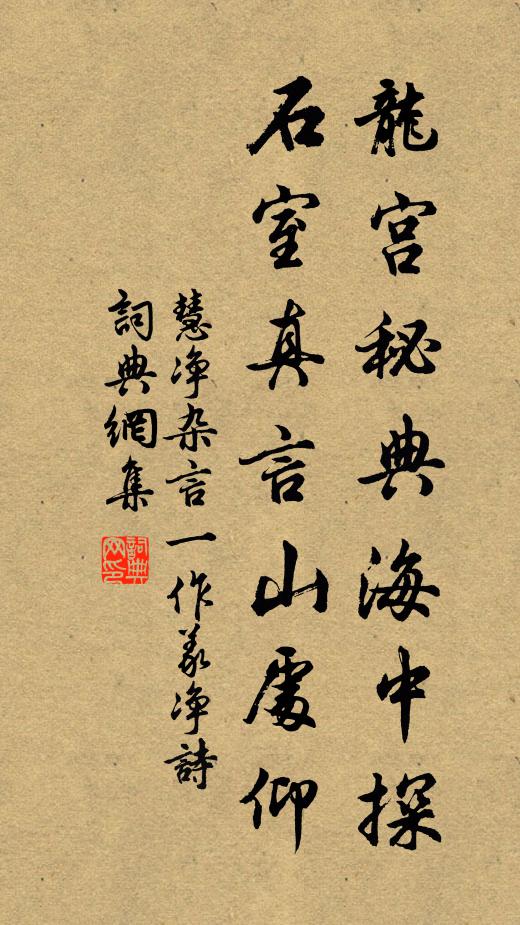 龍宮秘典海中探
石室真言山處仰
慧净杂言一作義净詩
詞典網集
詞典
网印